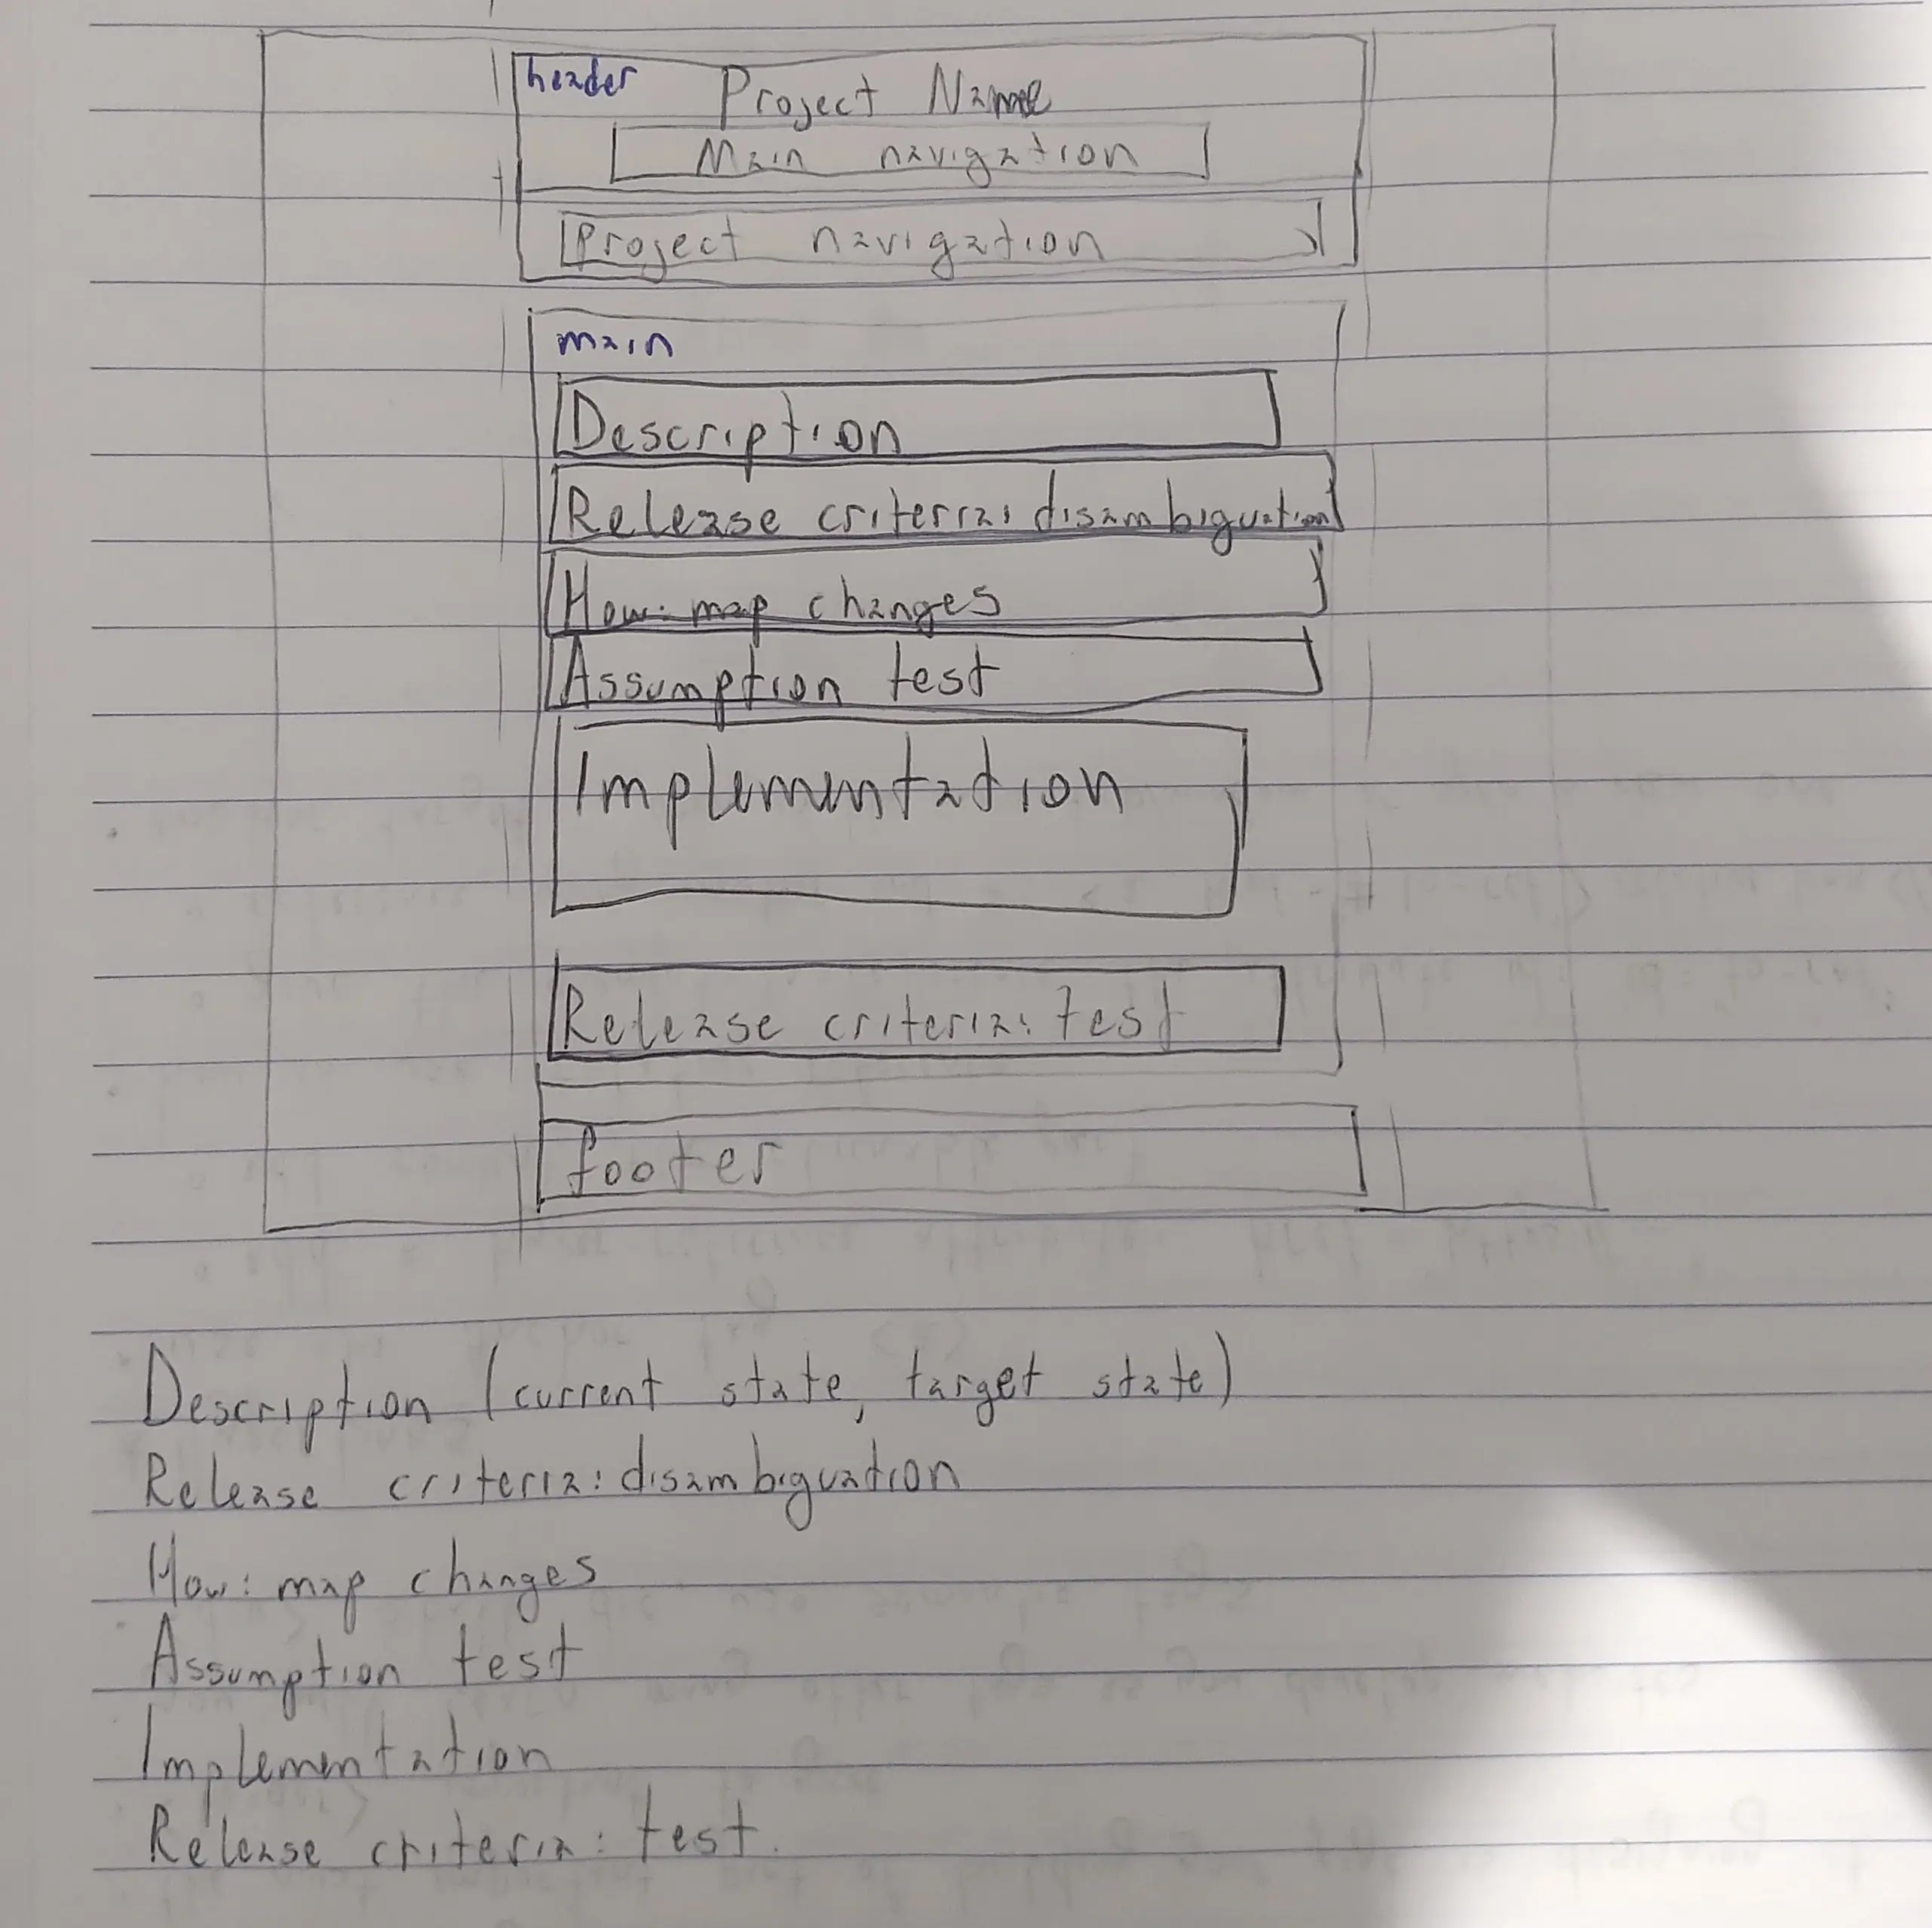 header
Project Name
Main navigation
Project navigation
main
Description
Release criteria: disambiguation
How: map changes
Assumption test
Implementation
Release criteria: test
footer
Description (current state, target state)
Release criteria: disambiguation
How: map changes
Assumption test
Implementation
Release criteria: test.